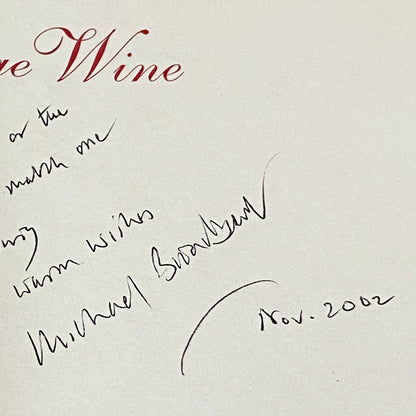 ge Wine
or the
match one
warm wishes
Michael Broadbent
Nov. 2002